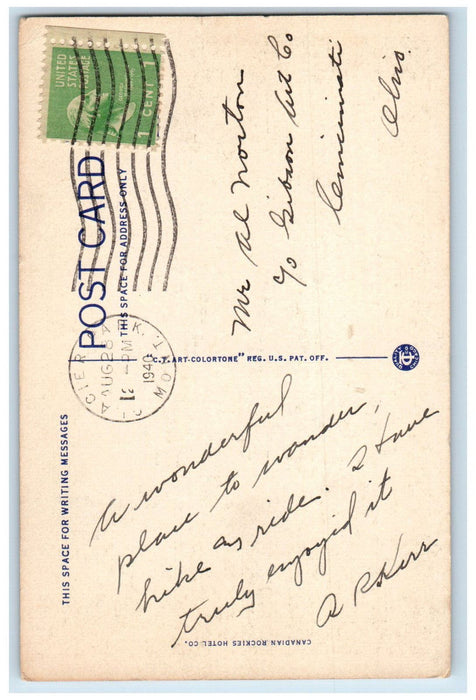 THIS SPACE FOR WRITING MESSAGES
A wonderful
place to wander,
hike or ride. I have
truly enjoyed it
A R Kerr
CANADIAN ROCKIES HOTEL CO.
POST CARD
THIS SPACE FOR ADDRESS ONLY
UNITED
STATES
POSTAGE
1 CENT 1
GLACIER PARK,
AUG 28
12 - PM
1940
MONT.
"C.T. ART-COLORTONE" REG. U.S. PAT. OFF.
Mr Al Norton
c/o Gibson Art Co
Cincinnati
Ohio.